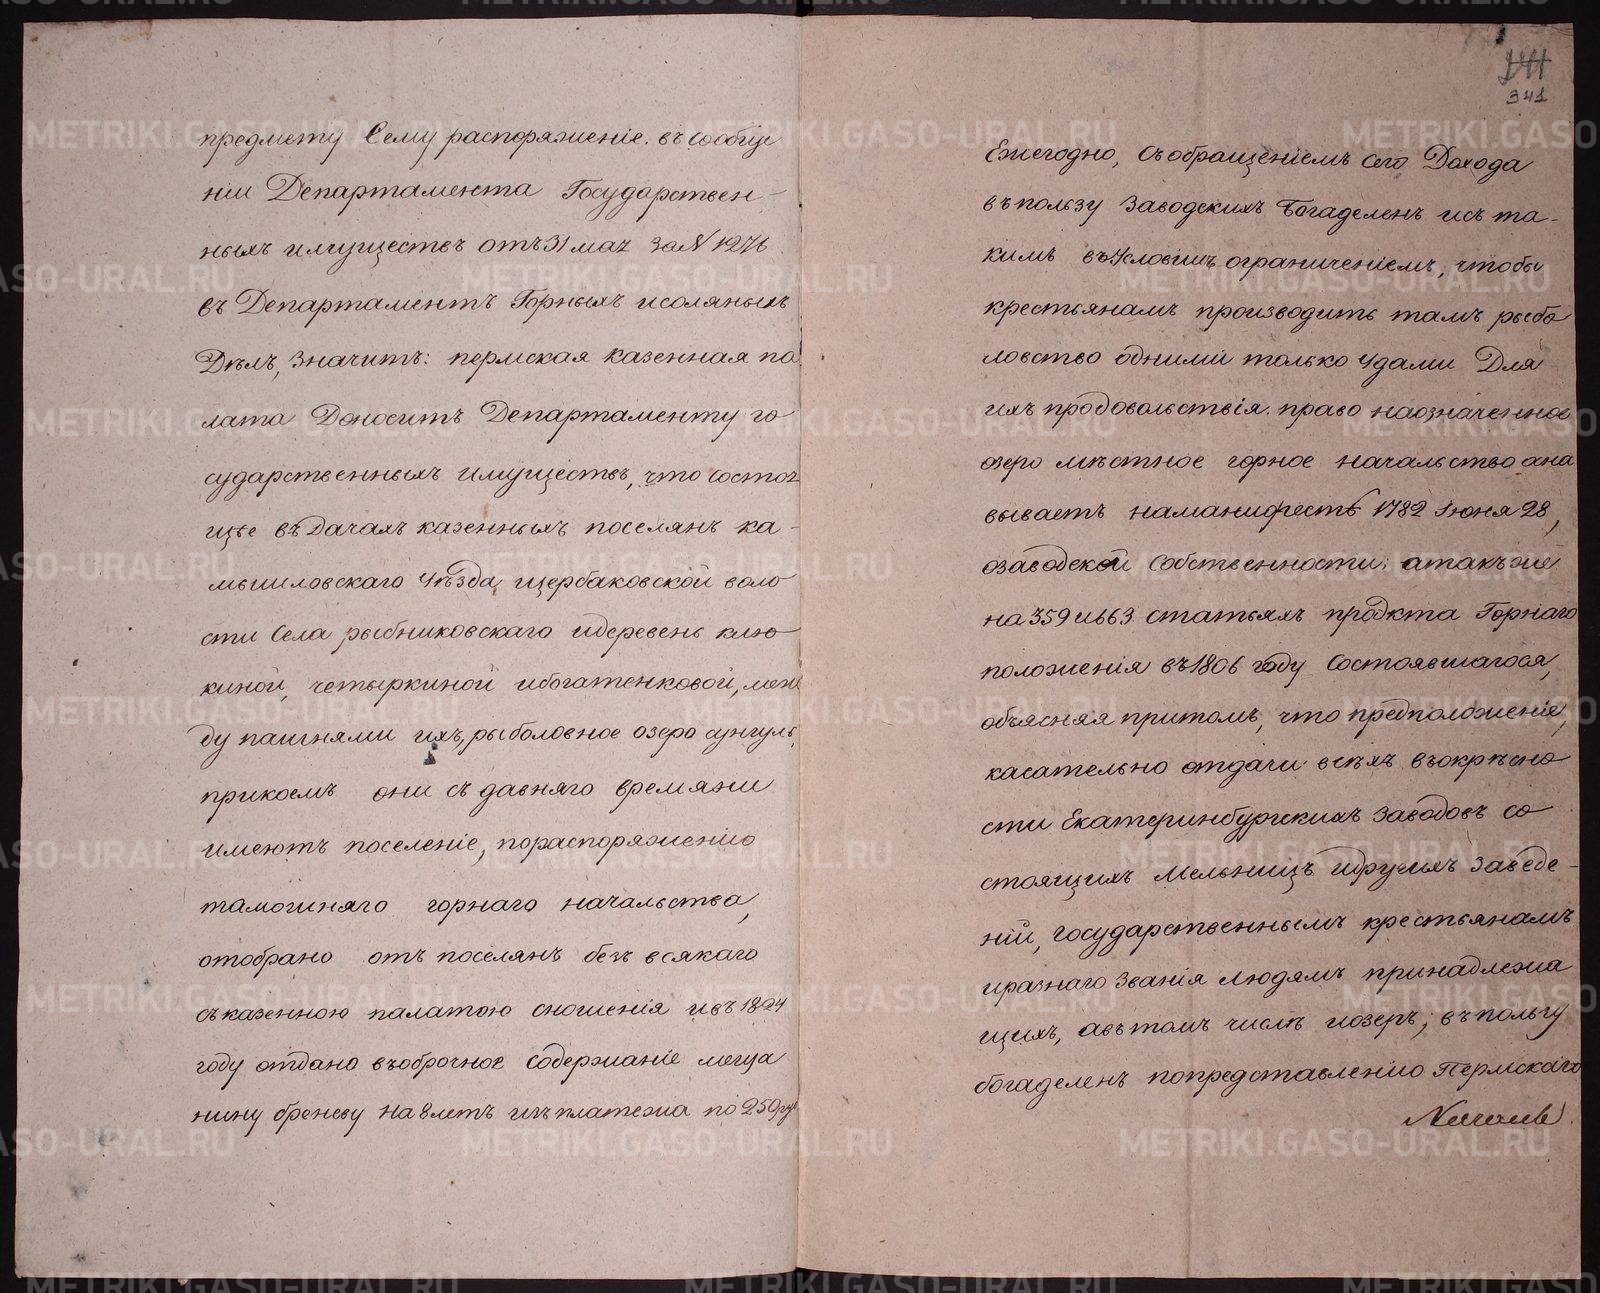 предмету Сему распоряженіе. въ сообще
ніи Департамента Государствен-
ныхъ имуществъ отъ 31 мая за N 1276
въ Департаментъ Горныхъ исоляныхъ
Дѣлъ, значитъ: пермская казенная па
лата Доноситъ Департаменту го
сударственныхъ имуществъ, что состоя
щее въ Дачахъ казенныхъ поселянъ ка-
мышловскаго Уѣзда, щербаковской воло
сти Села рыбниковскаго идеревень клю
киной, четыркиной ибогатенковой, меж
ду пашнями ихъ, рыболовное озеро сунгуль,
прикоемъ они съ давняго времяни
имеютъ поселеніе, пораспоряженію
тамошняго горнаго начальства,
отобрано отъ поселянъ безъ всякаго
съказенною палатою сношенія ивъ 1824
году отдано въоброчное содержаніе меща
нину бреневу на 8 летъ изъ платежа по 250 ру
341
Ежегодно, Съобращеніемъ сего Дохода
въпользу Заводскихъ Богаделенъ исъ та-
кимъ въУсловіи ограниченіемъ, чтобы
крестьянамъ производить тамъ рыбо
ловство одними только Удами Для
ихъ продовольствія. право наозначенное
озеро мѣстное горное начальство осно
вываетъ наманифестѣ 1782 Іюня 28,
озаводской Собственности; атакъже
на 359 и 663 статьяхъ проэкта Горнаго
положенія въ 1806 году Состоявшагося,
объясняя притомъ, что предположеніе,
касательно отдачи всѣхъ въокрѣсно
сти Екатеринбургскихъ заводовъ со
стоящихъ Мельницъ идругихъ заведе-
ній, государственнымъ крестьянамъ
иразнаго званія людямъ принадлежа
щихъ, авътомъ числѣ иозеръ, въпользу
богаделенъ попредставленію Пермскаго
METRIKI.GASO-URAL.RU